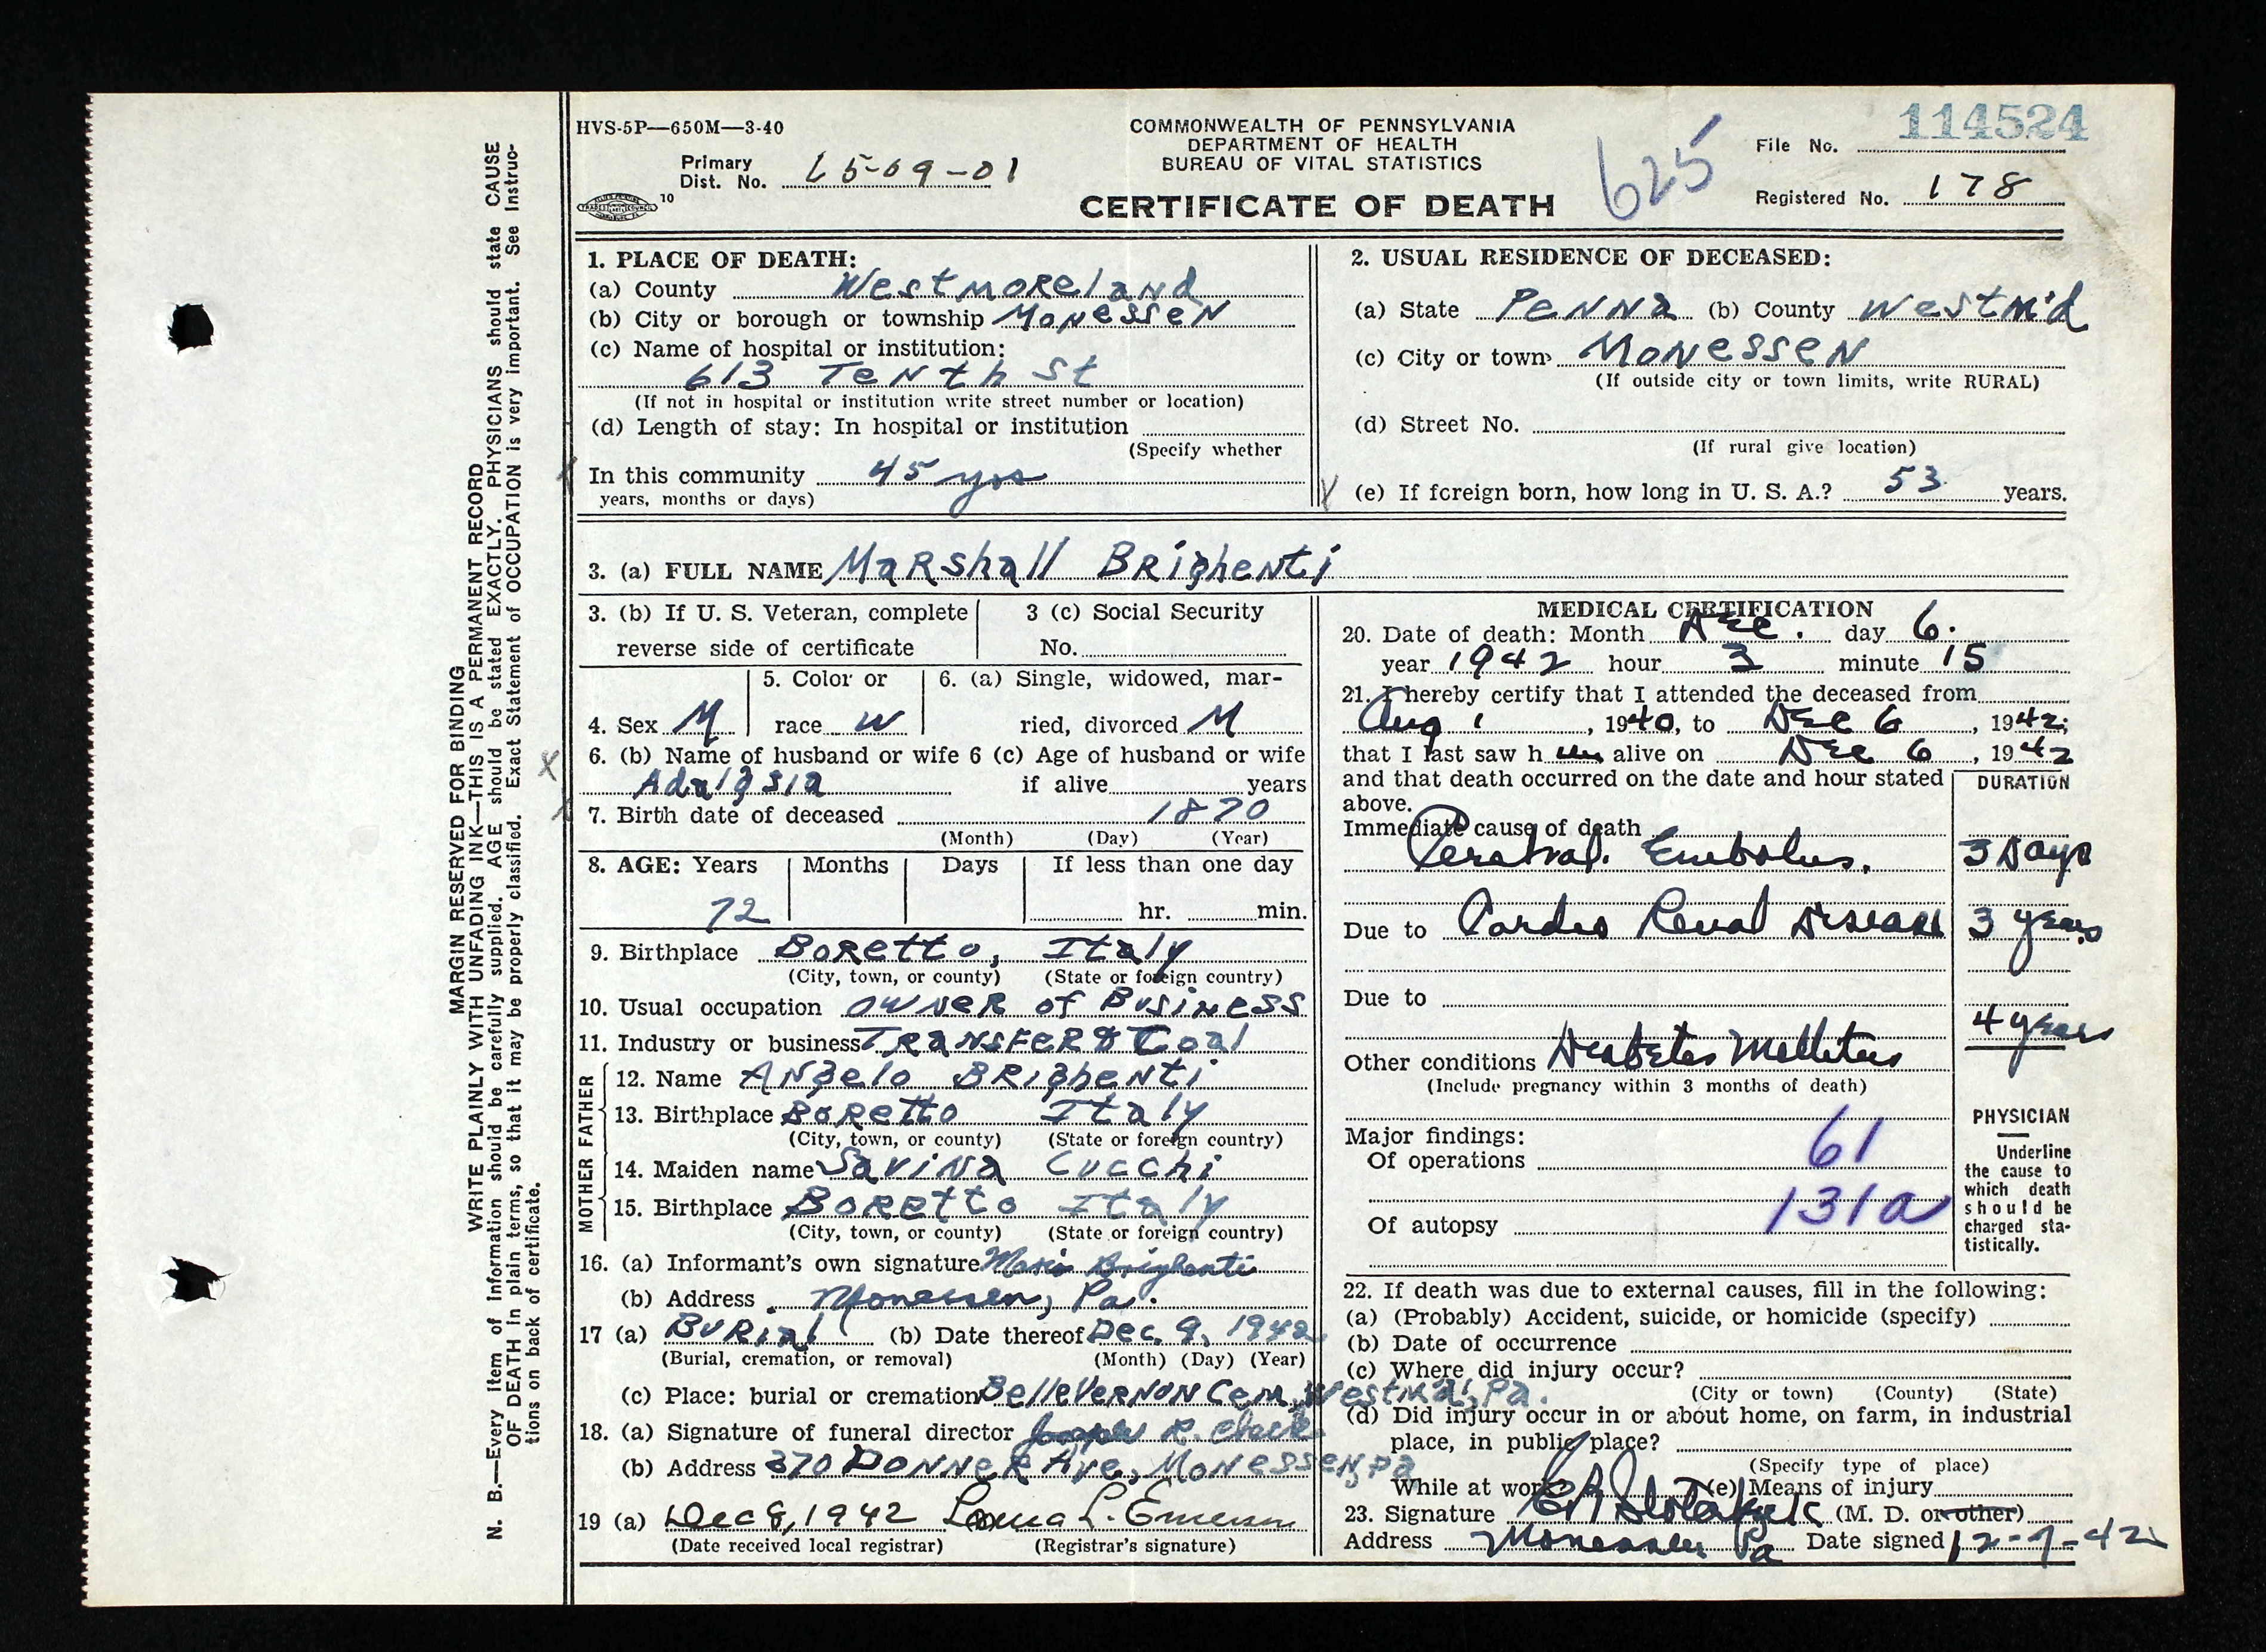 HVS-5P—650M—3-40
COMMONWEALTH OF PENNSYLVANIA
DEPARTMENT OF HEALTH
BUREAU OF VITAL STATISTICS
CERTIFICATE OF DEATH
625
114524
File No.
Primary
Dist. No. 65-09-01
10
Registered No. 178
1. PLACE OF DEATH:
(a) County Westmoreland
(b) City or borough or township Monessen
(c) Name of hospital or institution:
613 Tenth St
(If not in hospital or institution write street number or location)
(d) Length of stay: In hospital or institution
(Specify whether
In this community 45 yrs
years, months or days)
2. USUAL RESIDENCE OF DECEASED:
(a) State Penna (b) County Westm'd
(c) City or town Monessen
(If outside city or town limits, write RURAL)
(d) Street No.
(If rural give location)
(e) If foreign born, how long in U. S. A.? 53 years.
3. (a) FULL NAME Marshall Brighenti
3. (b) If U. S. Veteran, complete
reverse side of certificate
3 (c) Social Security
No.
4. Sex M
5. Color or
race W
6. (a) Single, widowed, mar-
ried, divorced M
6. (b) Name of husband or wife 6 (c) Age of husband or wife
Adalgsia if alive years
7. Birth date of deceased 1870
(Month) (Day) (Year)
8. AGE: Years Months Days If less than one day
72 hr. min.
9. Birthplace Boretto, Italy
(City, town, or county) (State or foreign country)
10. Usual occupation owner of Business
11. Industry or business Transfer & Coal
FATHER
12. Name Angelo Brighenti
13. Birthplace Boretto Italy
(City, town, or county) (State or foreign country)
MOTHER
14. Maiden name Savina Cucchi
15. Birthplace Boretto Italy
(City, town, or county) (State or foreign country)
16. (a) Informant's own signature Brighenti
(b) Address Monessen, Pa.
17 (a) Burial (b) Date thereof Dec. 9, 1942
(Burial, cremation, or removal) (Month) (Day) (Year)
(c) Place: burial or cremation Belle Vernon Cem, Westm'd, Pa.
18. (a) Signature of funeral director Joseph R.
(b) Address 370 Donner Ave, Monessen, Pa
19 (a) Dec 8, 1942 L. Emerson
(Date received local registrar) (Registrar's signature)
MEDICAL CERTIFICATION
20. Date of death: Month Dec. day 6.
year 1942 hour 3 minute 15
21. I hereby certify that I attended the deceased from
Aug 1, 1940, to Dec 6, 1942;
that I last saw h im alive on Dec 6, 1942
and that death occurred on the date and hour stated
above.
DURATION
Immediate cause of death
Cerebral Embolus. 3 Days
Due to Cardio Renal Disease 3 years
Due to
4 years
Other conditions Diabetes Mellitus
(Include pregnancy within 3 months of death)
Major findings:
Of operations 61
Of autopsy 131a
PHYSICIAN
Underline
the cause to
which death
should be
charged sta-
tistically.
22. If death was due to external causes, fill in the following:
(a) (Probably) Accident, suicide, or homicide (specify)
(b) Date of occurrence
(c) Where did injury occur?
(City or town) (County) (State)
(d) Did injury occur in or about home, on farm, in industrial
place, in public place?
(Specify type of place)
While at work? (e) Means of injury
23. Signature (M. D. or other)
Address Monessen Pa Date signed 12-7-42
MARGIN RESERVED FOR BINDING
WRITE PLAINLY WITH UNFADING INK—THIS IS A PERMANENT RECORD
N. B.—Every item of information should be carefully supplied. AGE should be stated EXACTLY. PHYSICIANS should state CAUSE
OF DEATH in plain terms, so that it may be properly classified. Exact Statement of OCCUPATION is very important. See Instruc-
tions on back of certificate.